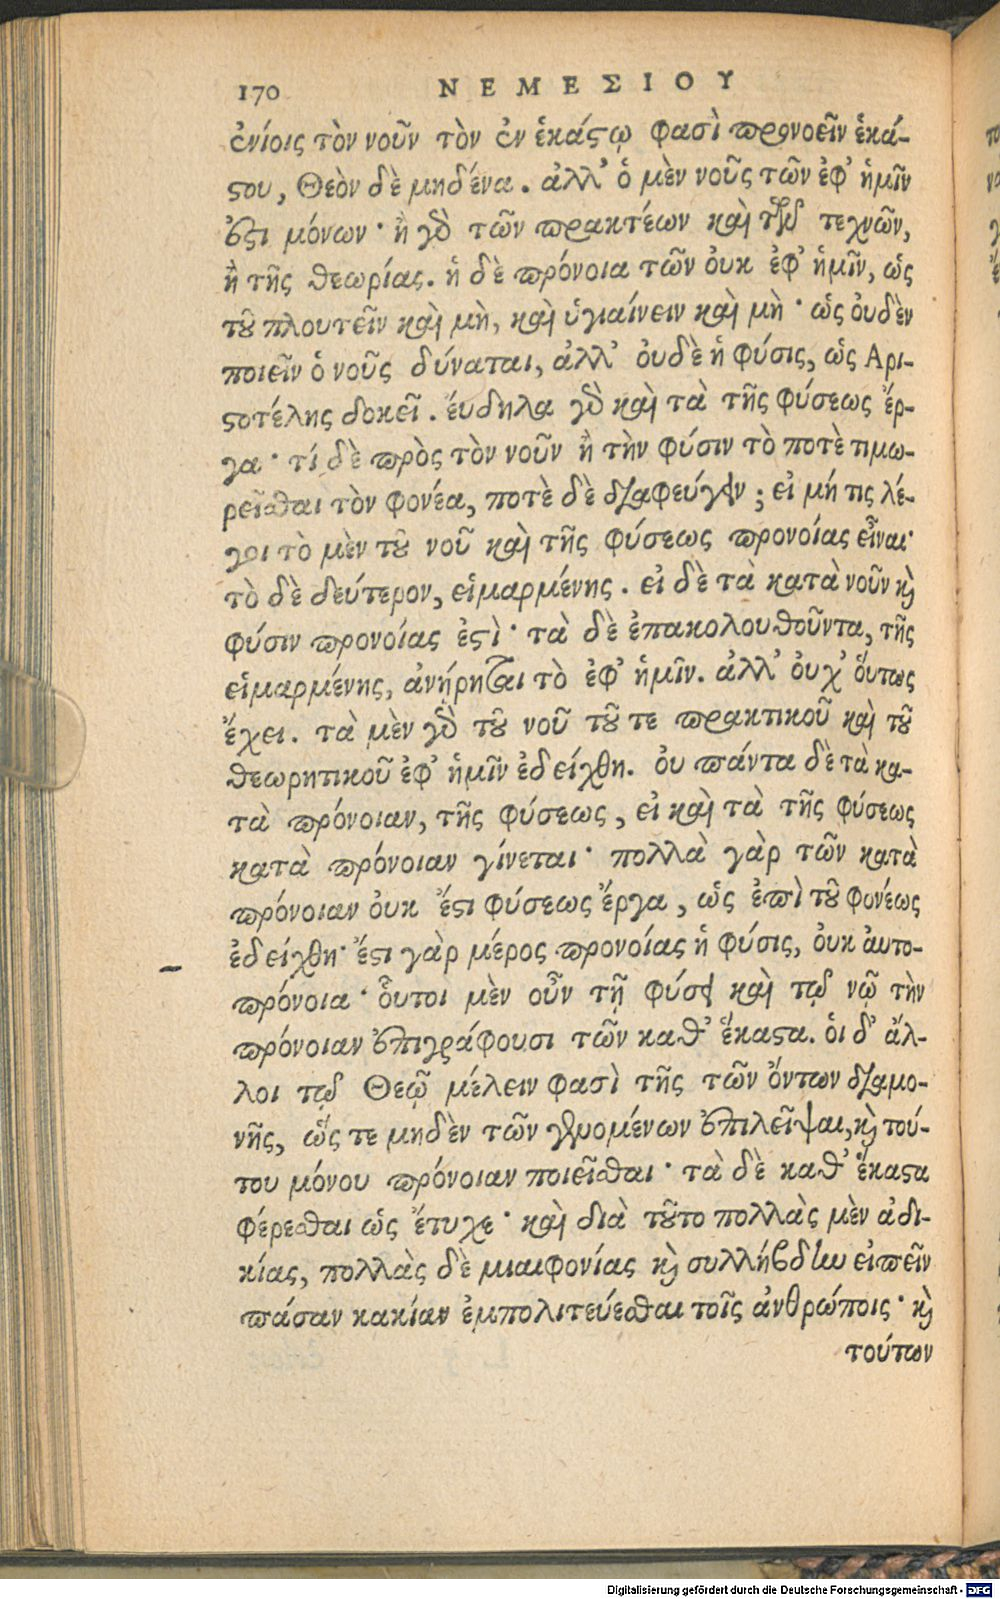 170 ΝΕΜΕΣΙΟΥ
ἐνίοις τὸν νοῦν τὸν ἐν ἑκάϛῳ φασὶ προνοεῖν ἑκά-
ϛου, Θεὸν δὲ μηδένα. ἀλλ' ὁ μὲν νοῦς τῶν ἐφ' ἡμῖν
ἐϛι μόνων· ἢ γὰρ τῶν πρακτέων καὶ τῶν τεχνῶν,
ἢ τῆς θεωρίας. ἡ δὲ πρόνοια τῶν οὐκ ἐφ' ἡμῖν, ὡς
τοῦ πλουτεῖν καὶ μὴ, καὶ ὑγιαίνειν καὶ μὴ· ὡς οὐδὲν
ποιεῖν ὁ νοῦς δύναται, ἀλλ' οὐδὲ ἡ φύσις, ὡς Αρι-
ϛοτέλης δοκεῖ. ἔυδηλα γὰρ καὶ τὰ τῆς φύσεως ἔρ-
γα· τί δὲ πρὸς τὸν νοῦν ἢ τὴν φύσιν τὸ ποτὲ τιμω-
ρεῖσθαι τὸν φονέα, ποτὲ δὲ διαφεύγειν; εἰ μή τις λέ-
γοι τὸ μὲν τοῦ νοῦ καὶ τῆς φύσεως προνοίας εἶναι·
τὸ δὲ δεύτερον, εἱμαρμένης. εἰ δὲ τὰ κατὰ νοῦν καὶ
φύσιν προνοίας ἐϛὶ· τὰ δὲ ἐπακολουθοῦντα, τῆς
εἱμαρμένης, ἀνήρηται τὸ ἐφ' ἡμῖν. ἀλλ' οὐχ' οὕτως
ἔχει. τὰ μὲν γὰρ τοῦ νοῦ τοῦ τε πρακτικοῦ καὶ τοῦ
θεωρητικοῦ ἐφ' ἡμῖν ἐδείχθη. οὐ πάντα δὲ τὰ κα-
τὰ πρόνοιαν, τῆς φύσεως, εἰ καὶ τὰ τῆς φύσεως
κατὰ πρόνοιαν γίνεται· πολλὰ γὰρ τῶν κατὰ
πρόνοιαν οὐκ ἔϛι φύσεως ἔργα, ὡς ἐπὶ τοῦ φονέως
ἐδείχθη· ἔϛι γὰρ μέρος προνοίας ἡ φύσις, οὐκ αὐτο-
πρόνοια· οὗτοι μὲν οὖν τῇ φύσει καὶ τῷ νῷ τὴν
πρόνοιαν ἐπιγράφουσι τῶν καθ' ἕκαϛα. οἱ δ' ἄλ-
λοι τῷ Θεῷ μέλειν φασὶ τῆς τῶν ὄντων διαμο-
νῆς, ὥϛ τε μηδὲν τῶν γενομένων ἐπιλεῖψαι, καὶ τού-
του μόνου πρόνοιαν ποιεῖσθαι· τὰ δὲ καθ' ἕκαϛα
φέρεσθαι ὡς ἔτυχε· καὶ διὰ τοῦτο πολλὰς μὲν ἀδι-
κίας, πολλὰς δὲ μιαιφονίας καὶ συλλήβδην εἰπεῖν
πάσαν κακίαν ἐμπολιτεύεσθαι τοῖς ἀνθρώποις· καὶ
τούτων
Digitalisierung gefördert durch die Deutsche Forschungsgemeinschaft - DFG